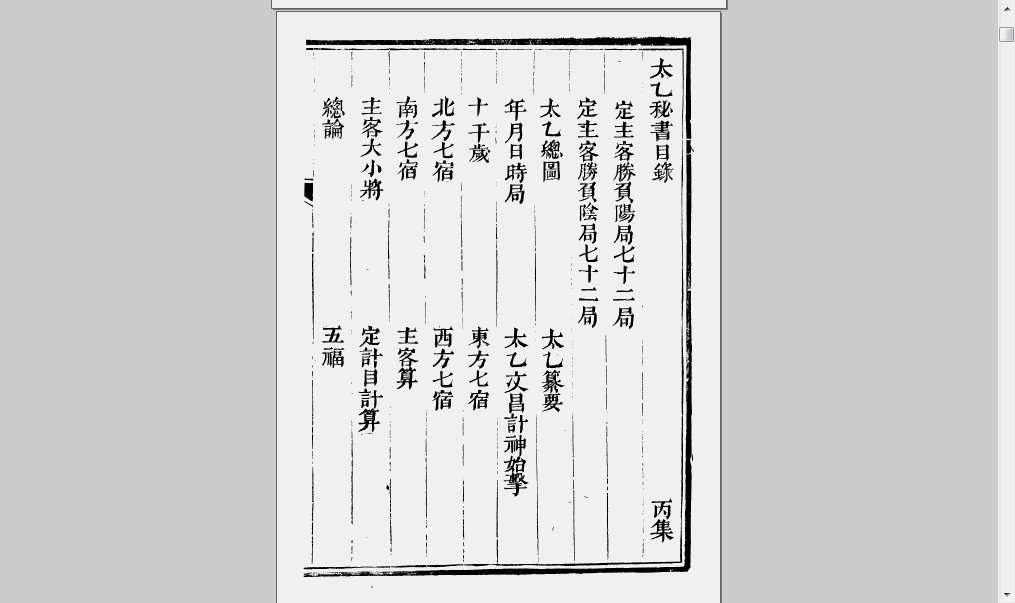 太乙秘書目錄 丙集
定主客勝負陽局七十二局
定主客勝負陰局七十二局
太乙總圖 太乙纂要
年月日時局 太乙文昌計神始擊
十干歲 東方七宿
北方七宿 西方七宿
南方七宿 主客算
主客大小將 定計目計算
總論 五福